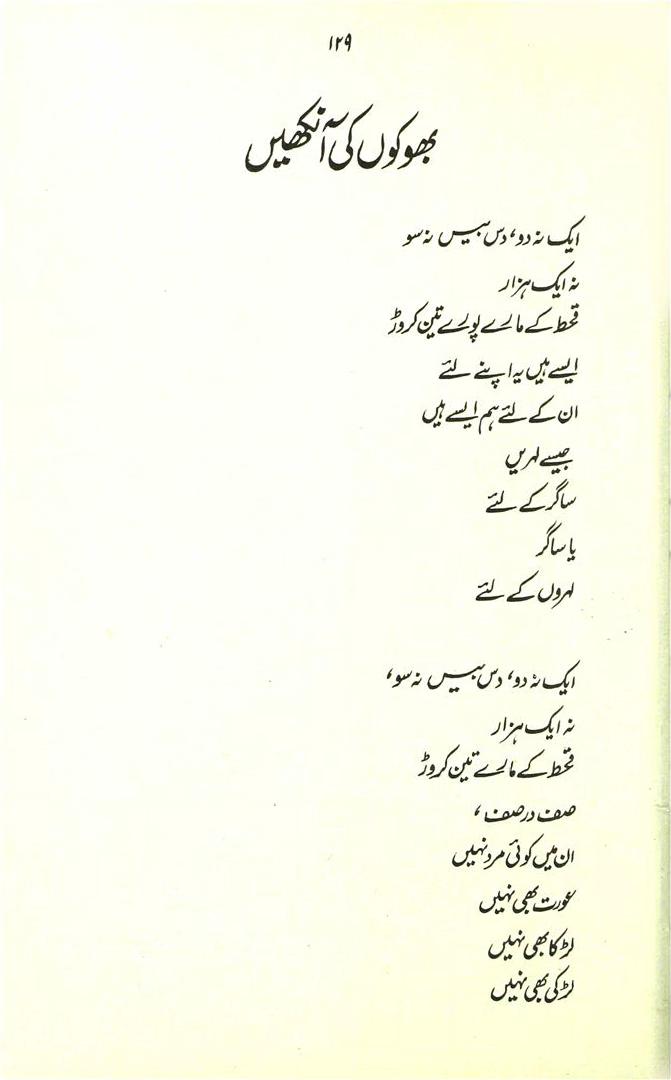 ۱۲۹
بھوکوں کی آنکھیں
ایک نہ دو، دس بیس نہ سو
نہ ایک ہزار
قحط کے مارے پورے تین کروڑ
ایسے ہیں یہ اپنے لئے
ان کے لئے ہم ایسے ہیں
جیسے لہریں
ساگر کے لئے
یا ساگر
لہروں کے لئے
ایک نہ دو، دس بیس نہ سو،
نہ ایک ہزار
قحط کے مارے تین کروڑ
صف در صف،
ان میں کوئی مرد نہیں
عورت بھی نہیں
لڑکا بھی نہیں
لڑکی بھی نہیں